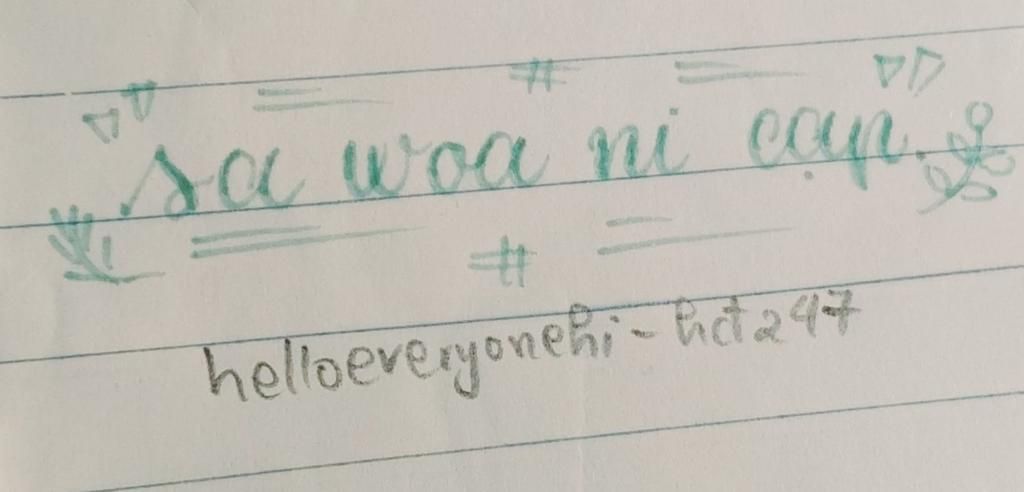 sa woa ni cạp.
helloeveryonehi-hct247